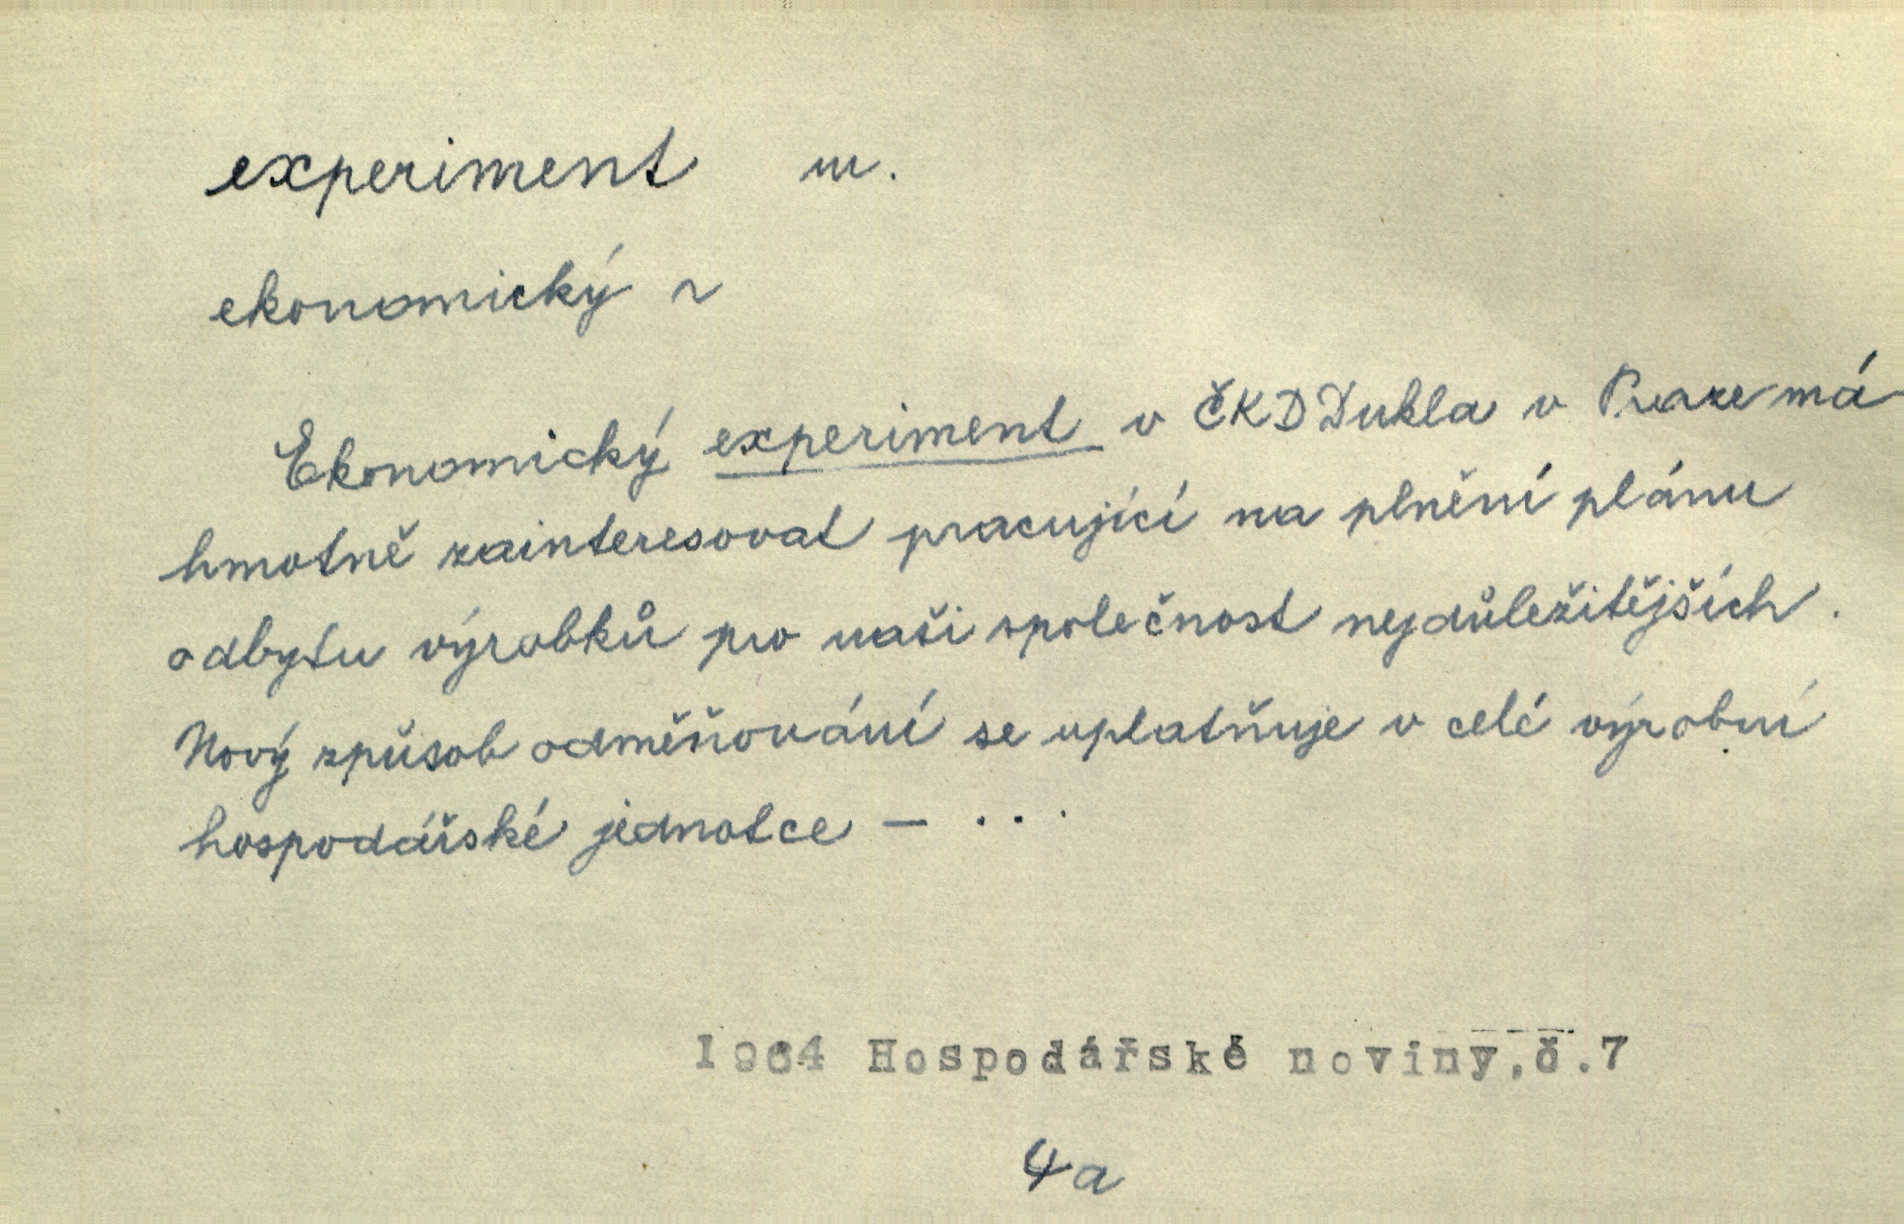 experiment m.
ekonomický ~
Ekonomický experiment v ČKD Dukla v Praze má
hmotně zainteresovat pracující na plnění plánu
odbytu výrobků pro naši společnost nejdůležitějších.
Nový způsob odměňování se uplatňuje v celé výrobní
hospodářské jednotce - ...
1964 Hospodářské noviny,č.7
4a